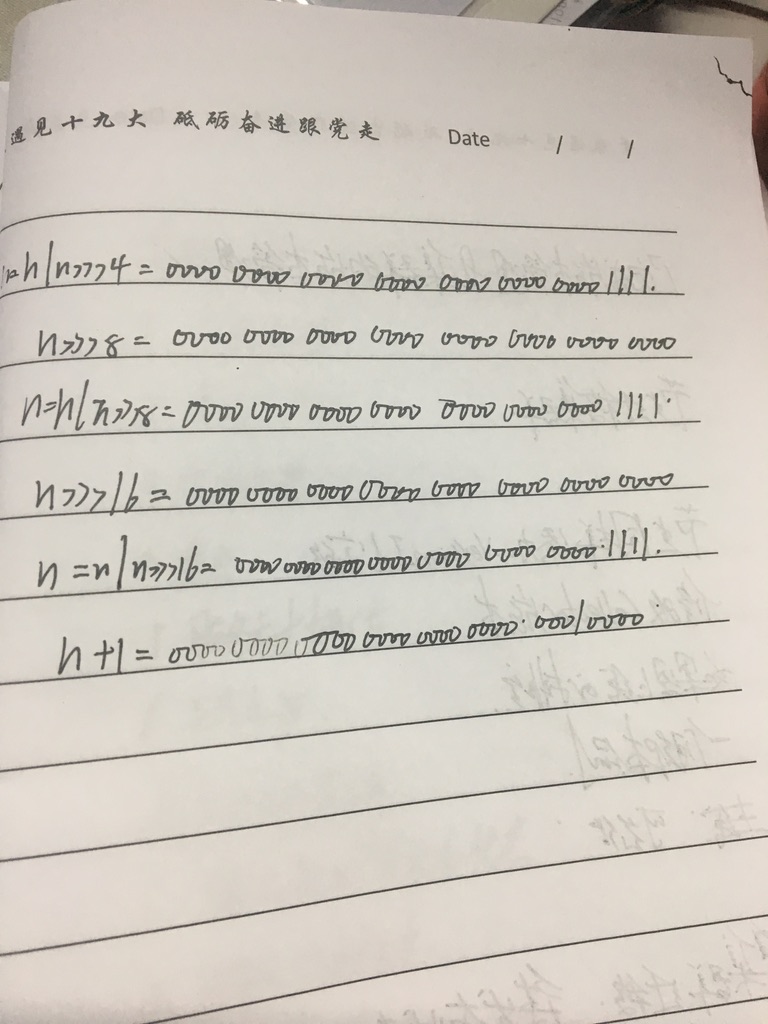 遇见十九大 砥砺奋进跟党走 Date / /
n=n|n>>>4 = 0000 0000 0000 0000 0000 0000 0000 1111.
n>>>8 = 0000 0000 0000 0000 0000 0000 0000 0000
n=n|n>>>8= 0000 0000 0000 0000 0000 0000 0000 1111.
n>>>16 = 0000 0000 0000 0000 0000 0000 0000 0000
n=n|n>>>16= 0000 0000 0000 0000 0000 0000 0000 1111.
n+1= 0000 0000 0000 0000 0000 0000 0001 0000